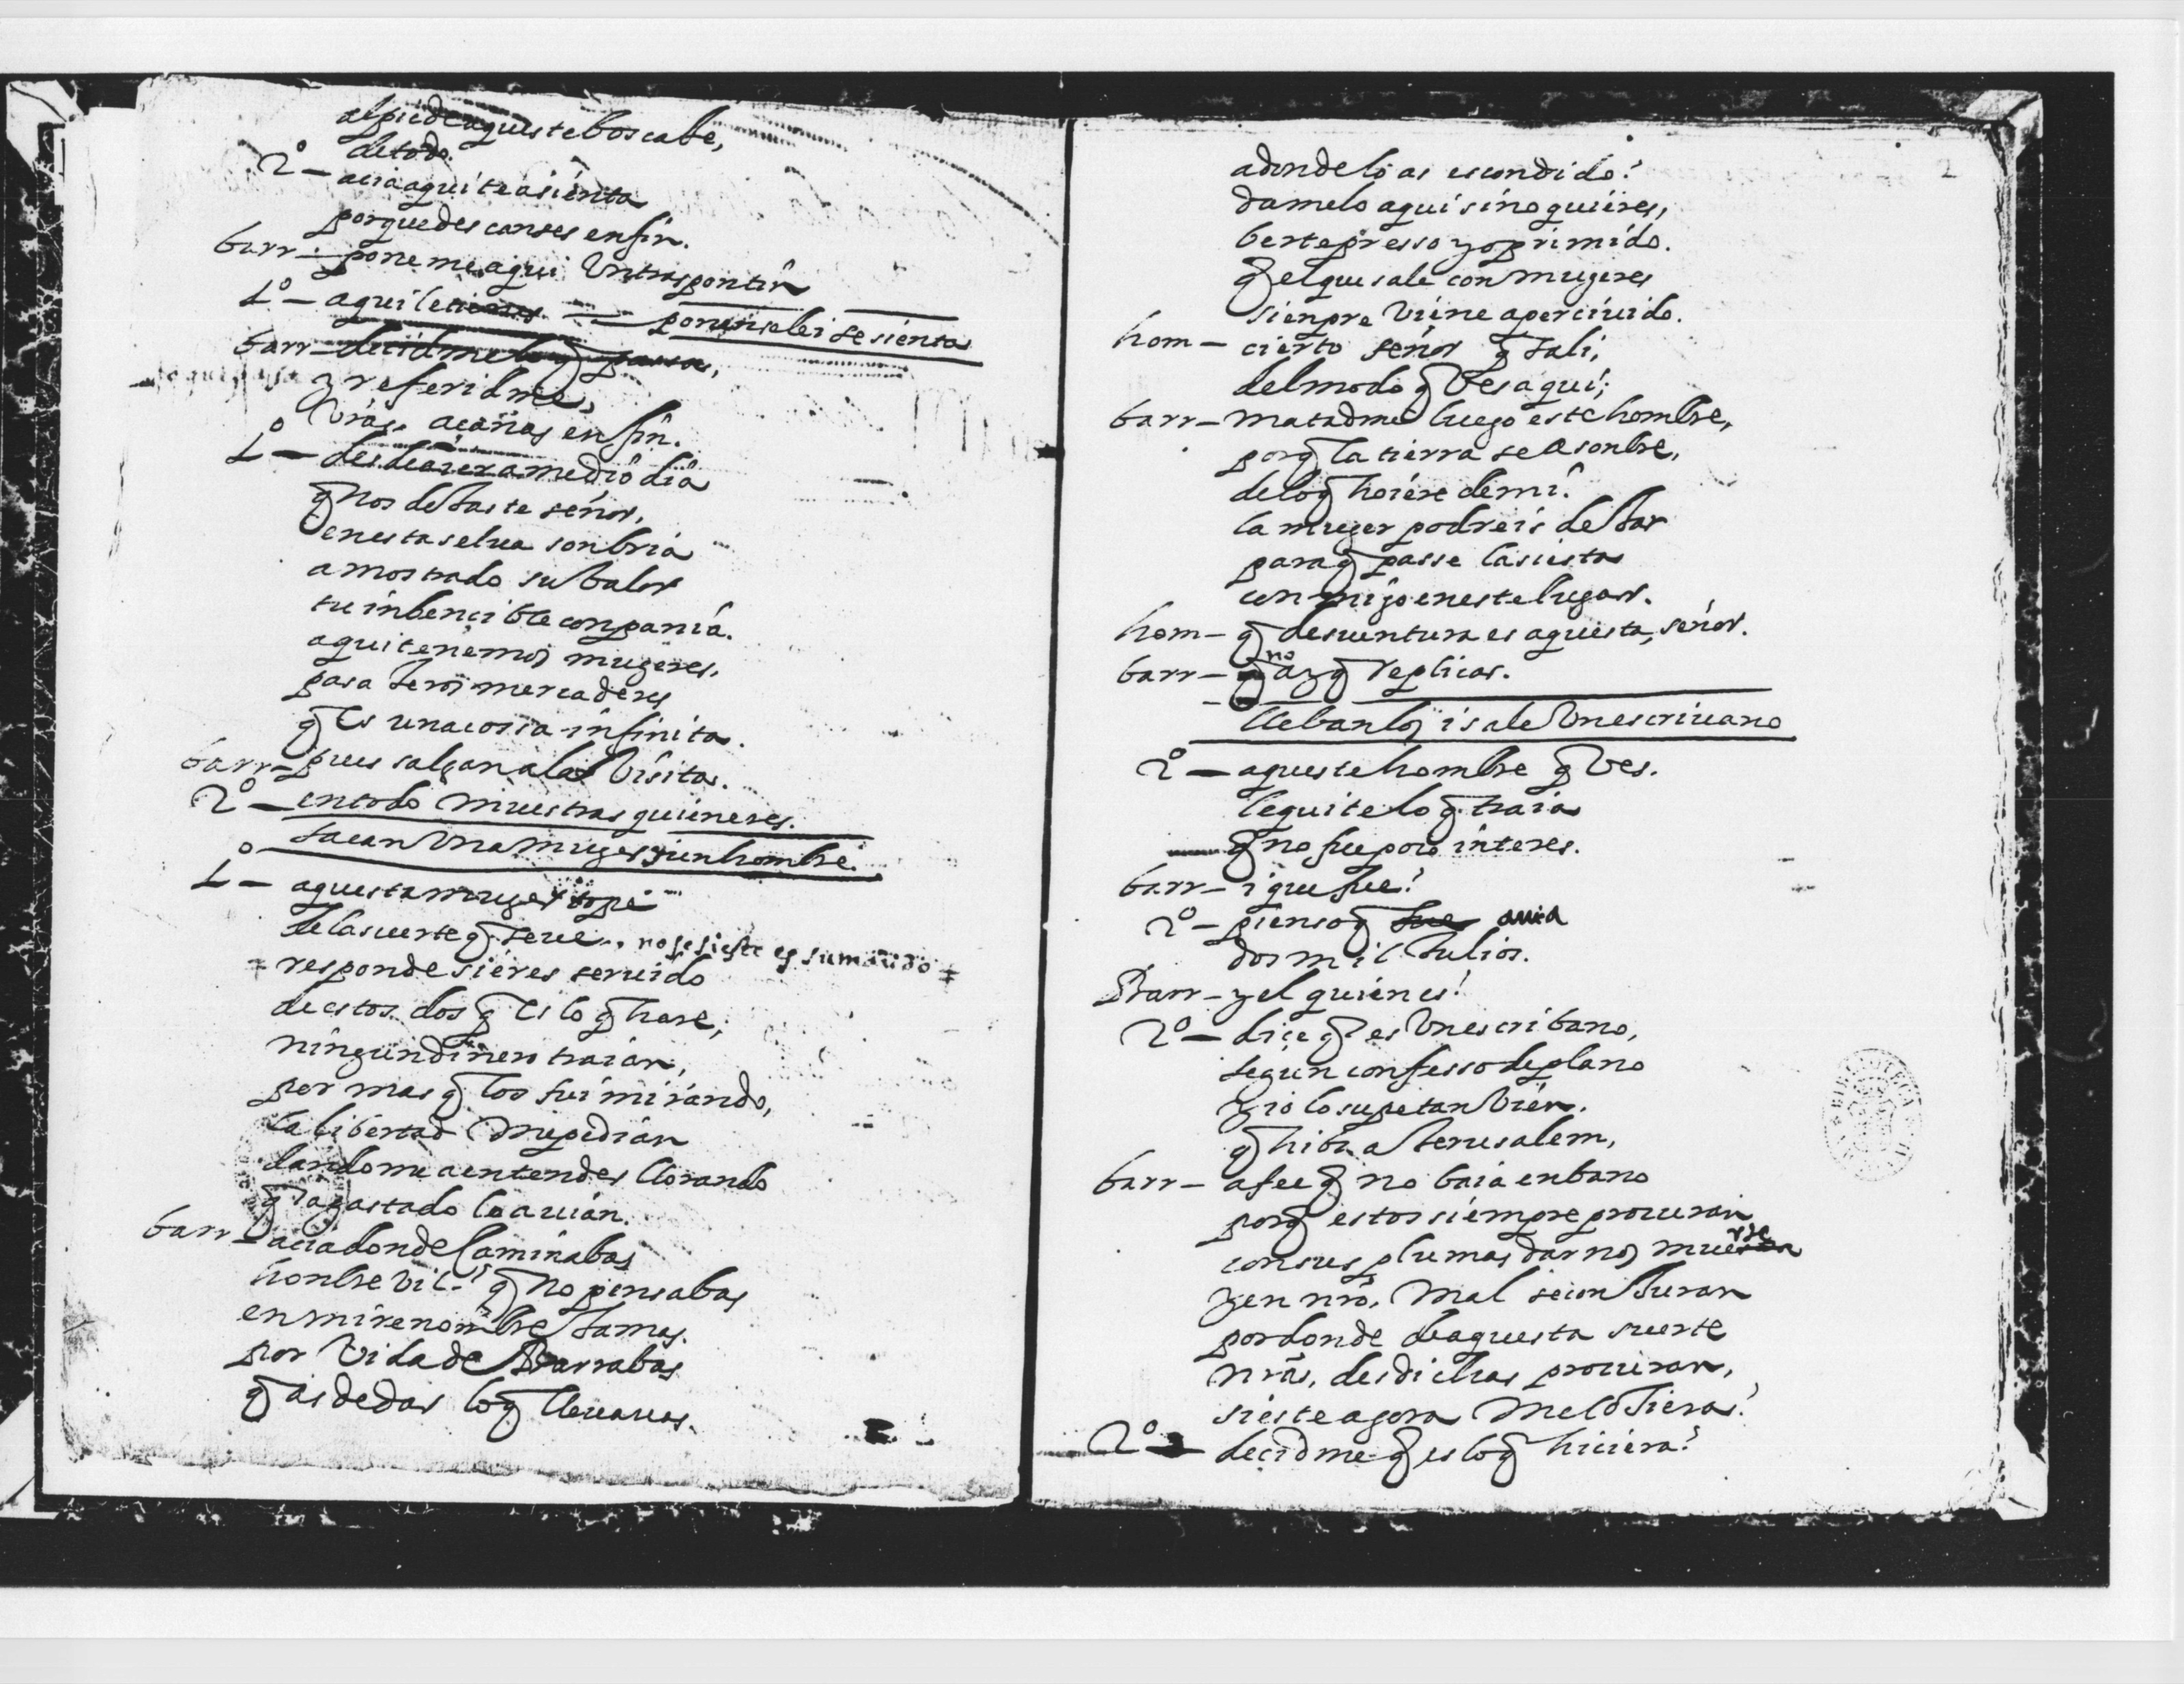 al pie de aqueste bos cabe,
de todo.
2º – acia aqui te asienta
porque descanses en fin.
barr – poneme aqui Un traspontin
1º – aqui le tienes = ponenselei se sienta
barr – decidme lo q̃ passa,
y referidme,
Vrãs. açañas en fin.
1º – desde ayer a medio dia
q̃ nos dexaste señor,
en esta selua sonbria
a mostrado su balor
tu inbencible conpania.
aqui tenemos mugeres,
pasaxeros mercaderes
q̃ es una cossa infinita.
barr – pues salgan a la Visita.
2º – en todo muestras quien eres.
sacan Una muger y un hombre.
1º – aquesta muger tope
de la suerte q̃ se ve. no se si este es su marido
responde si eres seruido
de estos dos q̃ es lo q̃ hare,
ningun dinero traian,
por mas q̃ los fui mirando,
la libertad me pedian
dandome a entender llorando
q̃ a gastado lo auian.
barr – acia donde Caminabas
honbre Vil? q̃ no pensabas
en mi renombre Jamas.
por Vida de Barrabas
q̃ as de dar lo q̃ lleuauas.
2
adonde lo as escondido?
damelo aqui si no quieres,
berte presso y oprimido.
q̃ el que sale con mugeres
sienpre Viene aperciuido.
hom – cierto señor q̃ sali,
del modo q̃ Ves aqui;
barr – matadme luego este hombre,
porq̃ la tierra se asonbre,
de lo q̃ hoiere de mi.
la muger podreis dexar
para q̃ passe la siesta
conmigo en este lugar.
hom – q̃ desuentura es aquesta, señor.
barr – no ay q̃ replicar.
lleban los i sale Un escriuano
2º – aqueste hombre q̃ Ves.
le quite lo q̃ traia
q̃ no fue poco interes.
barr – i que fue?
2º – pienso q̃ fue auia
dos mil Julios.
Barr – y el quien es?
2º – diçe q̃ es Un escribano,
segun confesso de plano
y io lo supe tan bien.
q̃ hiba a Jerusalem,
barr – a fee q̃ no baia en bano
porq̃ estos siempre procuran
con sus plumas darnos muerte
y en nrõ. mal se conJuran
por donde de aquesta suerte
nrãs. desdichas procuran,
si este agora me coJiera?
2º – decidme q̃ es lo q̃ hiciera?